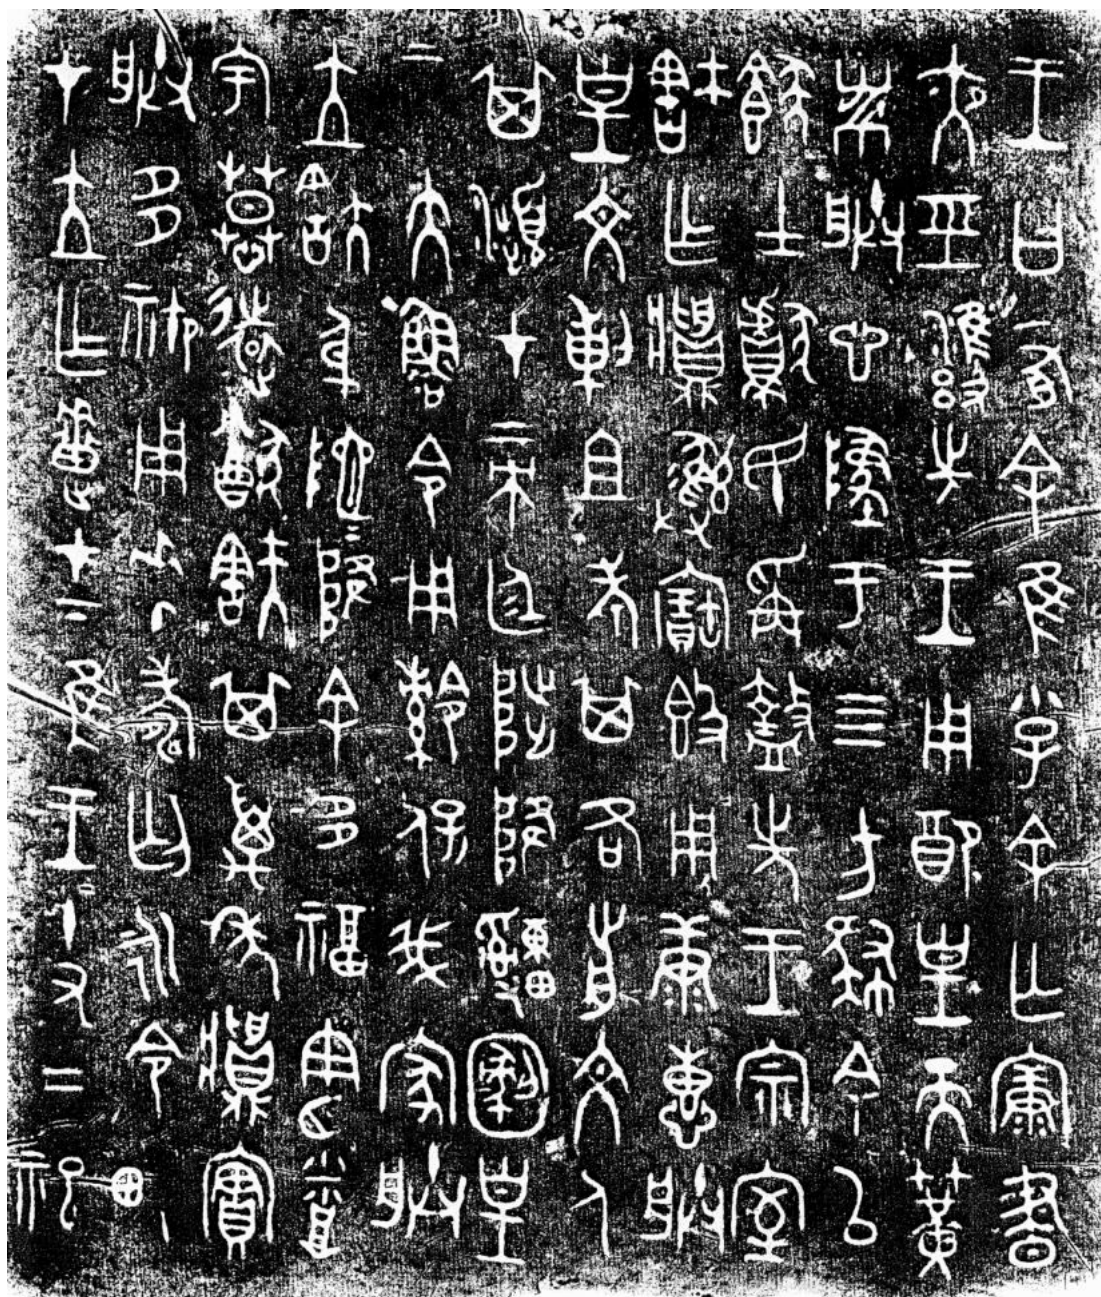 王曰有余隹小子余亡康晝
夜巠雍先王用配皇天簧
黹朕心墜于四方肆余㠯
士獻民爯盩先王宗室
㝬乍𪔉彝寶𣪘用康惠朕
皇文剌且考其各前文人
其瀕才帝廷陟降皇
上大魯令用保我家朕
立㝬身阤＝降余多福憲烝
宇慕遠猷㝬其萬年𪔉實
朕多禦用𠦪壽匄永令畯
才立乍疐才下隹王十又二祀